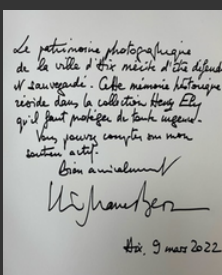 Le patrimoine photographique
de la ville d'Aix mérite d'être défendu
et sauvegardé. Cette mémoire historique
réside dans la collection Henry Ely
qu'il faut protéger de toute urgence.
Vous pouvez compter sur mon
soutien actif.
Bien amicalement
Aix, 9 mars 2022